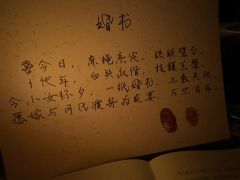 婚书
喜今日,赤绳系定,珠联璧合,
卜他年,白头永偕,桂馥兰馨,
今小女怀夕,一纸婚书,上表天地,
愿嫁与 为妻,与尔百年,